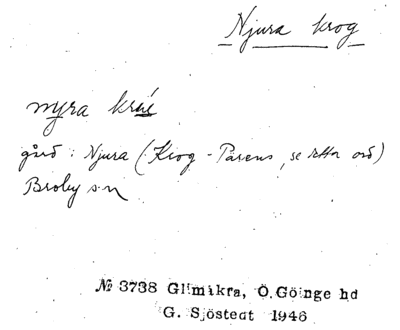 Njura krog
myra
gård : Njura (Krog - Pärens, se detta ord)
Broby sn
№ 3738 Glimåkra, Ö. Göinge hd
G. Sjöstedt 1946